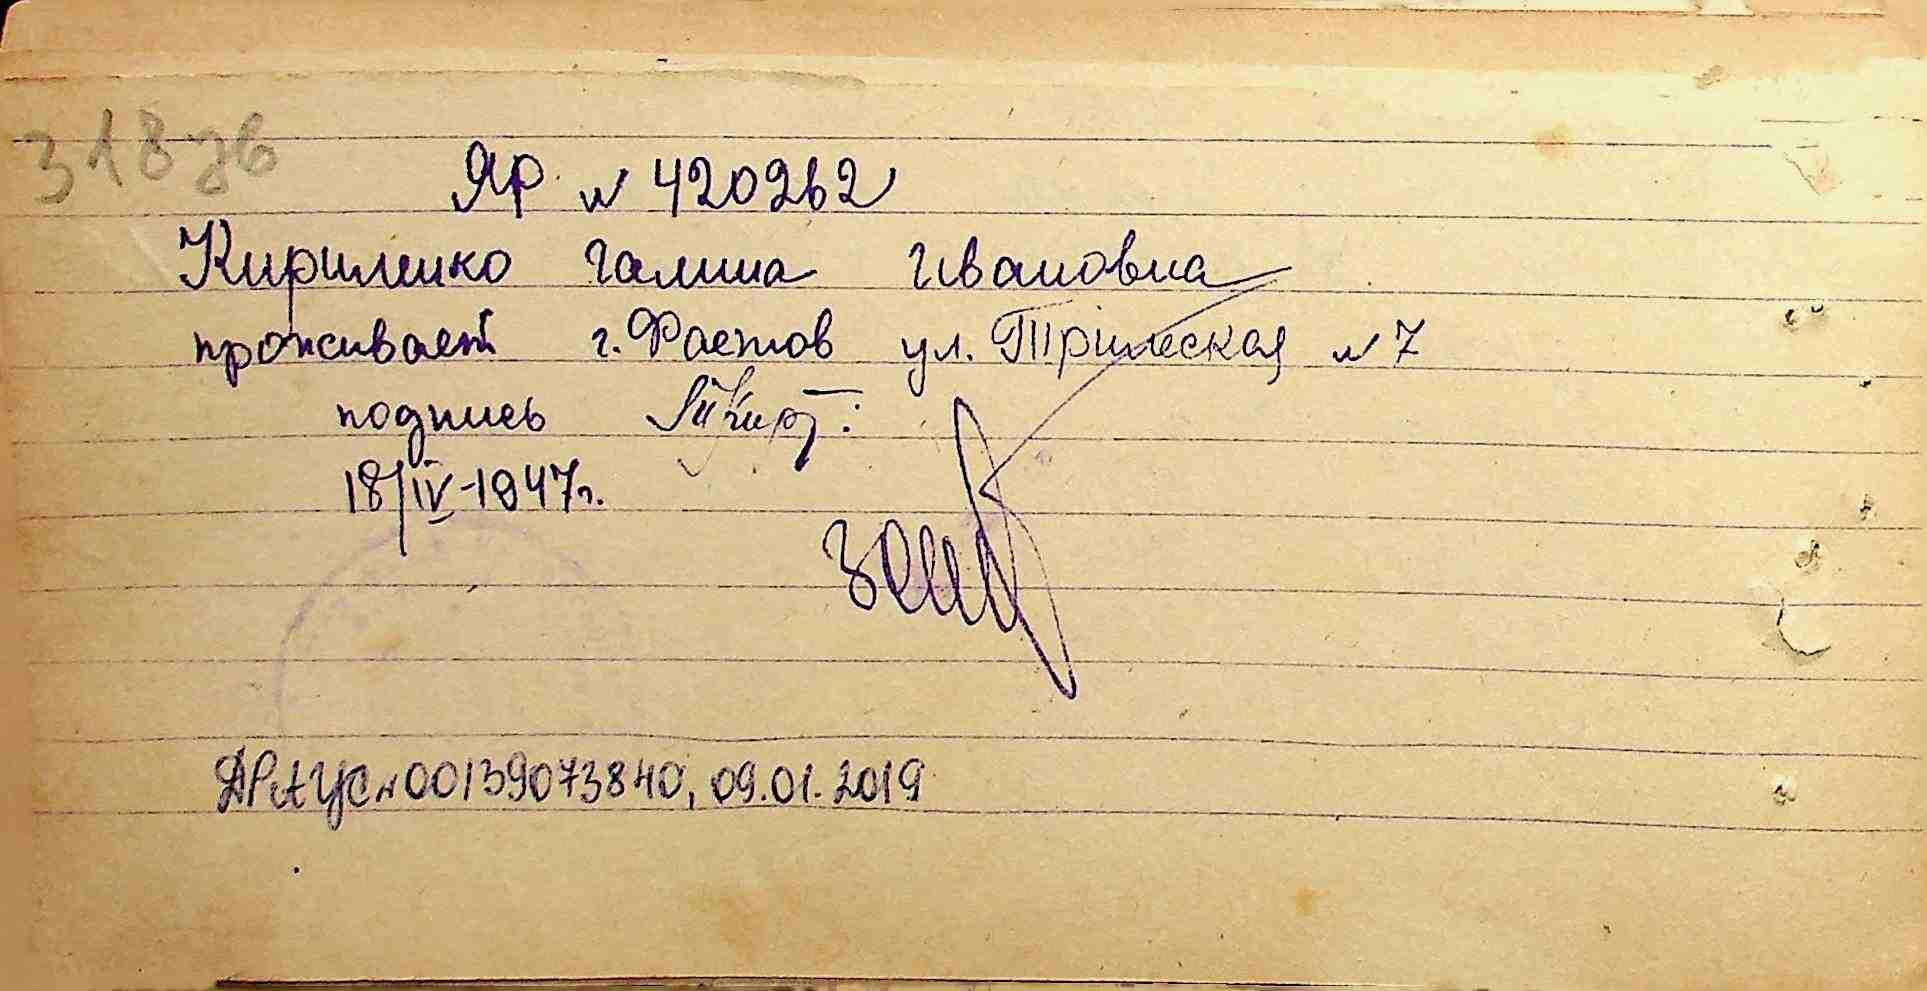 318 зв
ЯР № 420262
Кириленко Галина Ивановна
проживает г. Фастов ул. Трілеская № 7
подпись
18/IV-1947г.
ДРАЦС № 00139073840, 09.01.2019